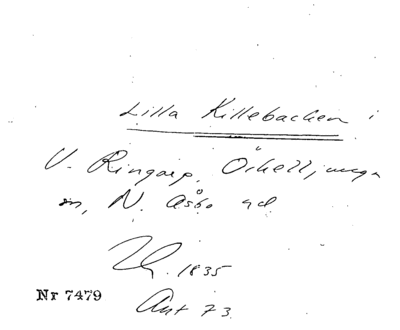 Lilla Killebacken i
V. Ringarp, Örkelljunga
sn, N. Åsbo hd
1835
Nr 7479
Ant 73.